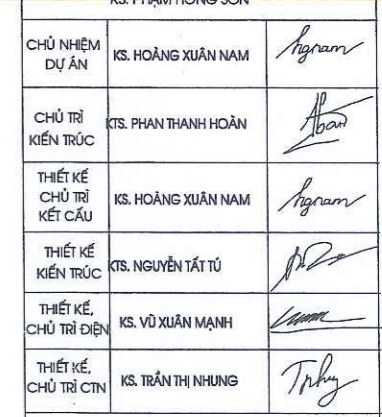 KS. PHẠM HỒNG SƠN
CHỦ NHIỆM
DỰ ÁN
KS. HOÀNG XUÂN NAM
CHỦ TRÌ
KIẾN TRÚC
KTS. PHAN THANH HOÀN
THIẾT KẾ
CHỦ TRÌ
KẾT CẤU
KS. HOÀNG XUÂN NAM
THIẾT KẾ
KIẾN TRÚC
KTS. NGUYỄN TẤT TÚ
THIẾT KẾ,
CHỦ TRÌ ĐIỆN
KS. VŨ XUÂN MẠNH
THIẾT KẾ,
CHỦ TRÌ CTN
KS. TRẦN THỊ NHUNG